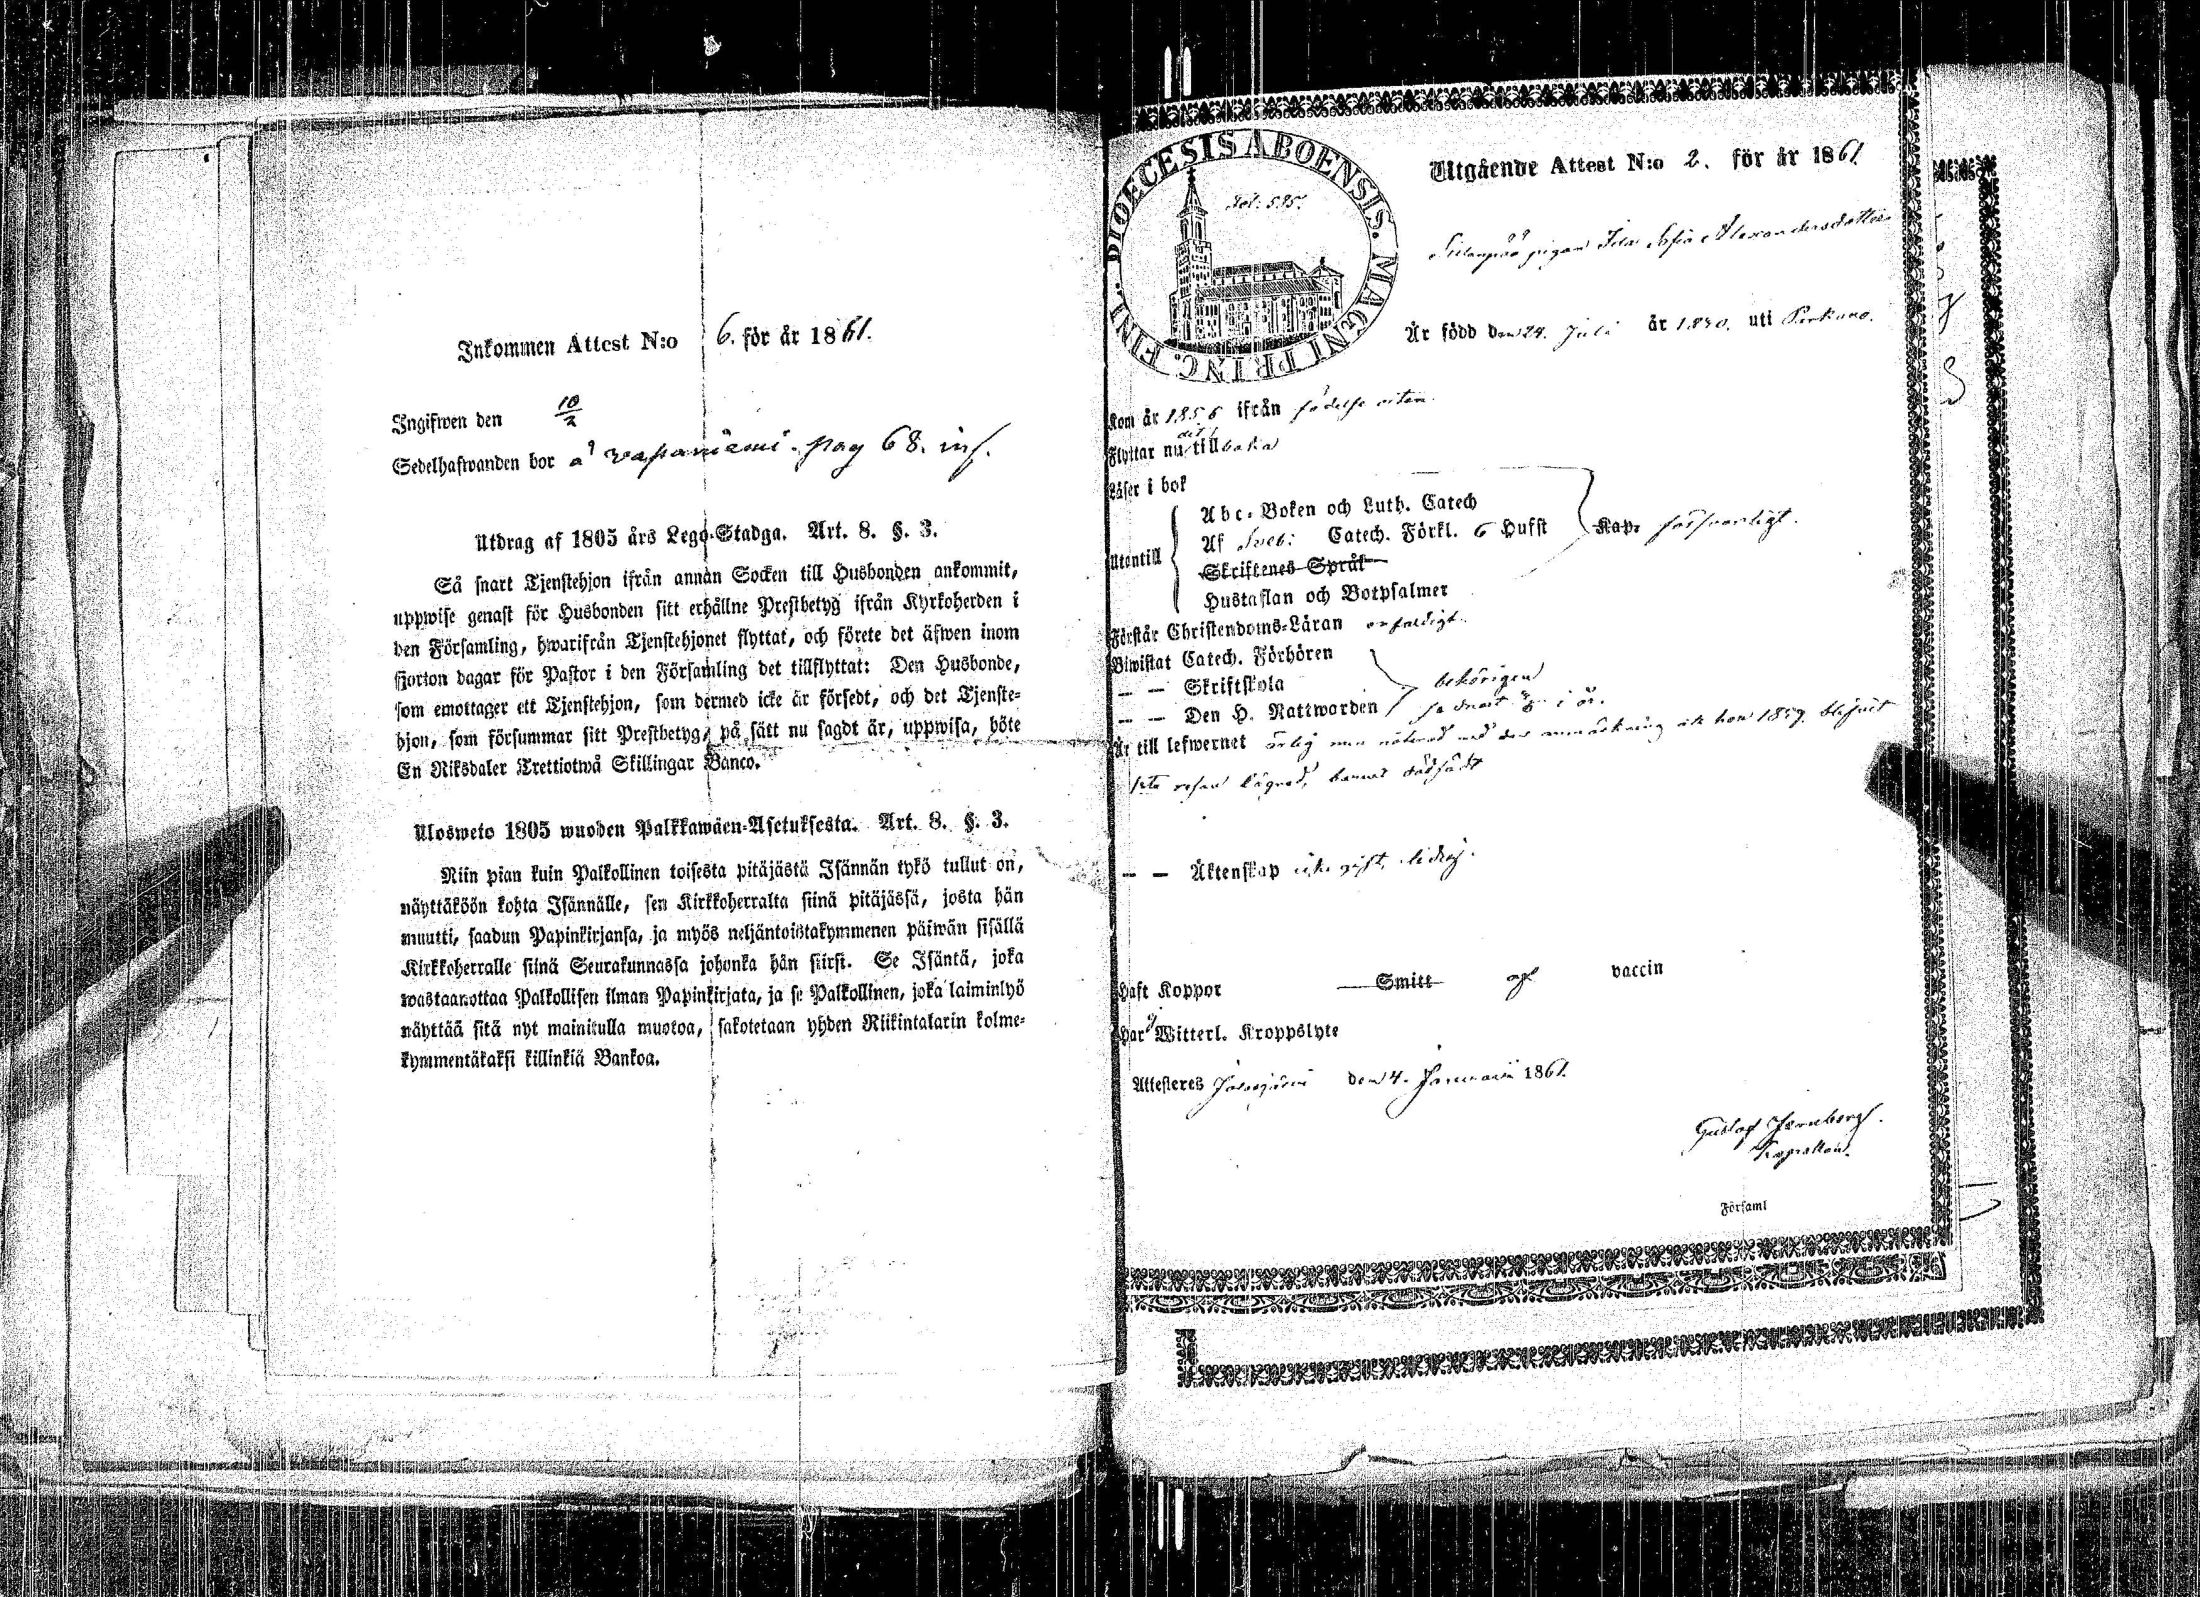 Inkommen Attest N:o 6. för år 1861.
Ingifwen den 10/2
Sedelhafwanden bor å vapaniemi. pag 68. inh.
Utdrag af 1805 års Lego-Stadga. Art. 8. §. 3.
Så snart Tjenstehjon ifrån annan Socken till Husbonden ankommit,
uppwise genast för Husbonden sitt erhållne Prestbetyg ifrån Kyrkoherden i
den Församling, hwarifrån Tjenstehjonet flyttat, och förete det äfwen inom
fjorton dagar för Pastor i den Församling det tillflyttat: Den Husbonde,
som emottager ett Tjenstehjon, som dermed icke är försedt, och det Tjenste-
hjon, som försummar sitt Prestbetyg, på sätt nu sagdt är, uppwisa, böte
En Riksdaler Trettiotwå Skillingar Banco.
Ulosweto 1805 wuoden Palkkawäen-Asetuksesta. Art. 8. §. 3.
Niin pian kuin Palkollinen toisesta pitäjästä Isännän tykö tullut on,
näyttäköön kohta Isännälle, sen Kirkkoherralta siinä pitäjässä, josta hän
muutti, saadun Papinkirjansa, ja myös neljäntoistakymmenen päiwän sisällä
Kirkkoherralle siinä Seurakunnassa johonka hän siirsi. Se Isäntä, joka
wastaanottaa Palkollisen ilman Papinkirjata, ja se Palkollinen, joka laiminlyö
näyttää sitä nyt mainitulla muotoa, sakotetaan yhden Riikintalarin kolme-
kymmentäkaksi killinkiä Bankoa.
DIOECESIS ABOENSIS. MAGNI PRINC. FINL.
Fol: 585.
Utgående Attest N:o 2. för år 1861.
Sillanpää pigan Ida Sofia Alexandersdotter
Är född den 24. Juli år 1840. uti Parkano.
Kom år 1856 ifrån födelse orten.
Flyttar nu dit tillbaka
Läser i bok
Utantill
Abc-Boken och Luth. Catech
Af Sveb: Catech. Förkl. 6 Hufst Kap. försvarligt.
Skriftenes Språk
Hustaflan och Botpsalmer
Förstår Christendoms-Läran enfaldigt.
Biwistat Catech. Förhören
— — Skriftskola behörigen
— — Den H. Nattwarden i år.
Är till lefwernet ärlig men noterad med den anmärkning att hon 1859. blifvit
1sta resan lägrad, barnet dödfödt
— — Äktenskap icke gift, ledig.
Haft Koppor Smitt af vaccin
Har ej Witterl. Kroppslyte
Attesteras den 4. Januari 1861.
Gustaf Jernberg.
Kapellan.
Församl